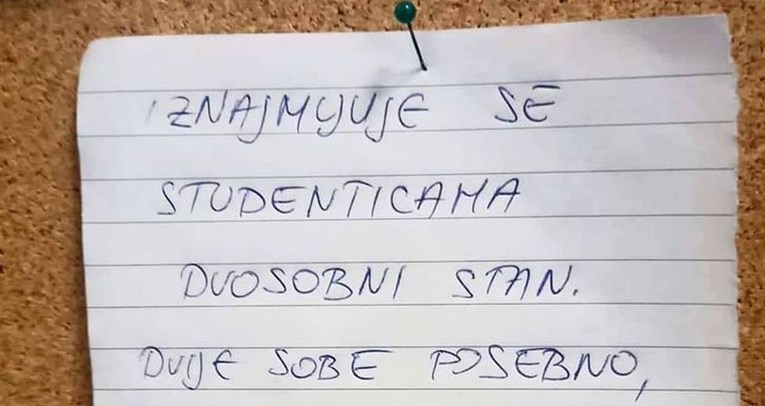 IZNAJMLJUJE SE
STUDENTICAMA
DVOSOBNI STAN.
DVIJE SOBE POSEBNO,